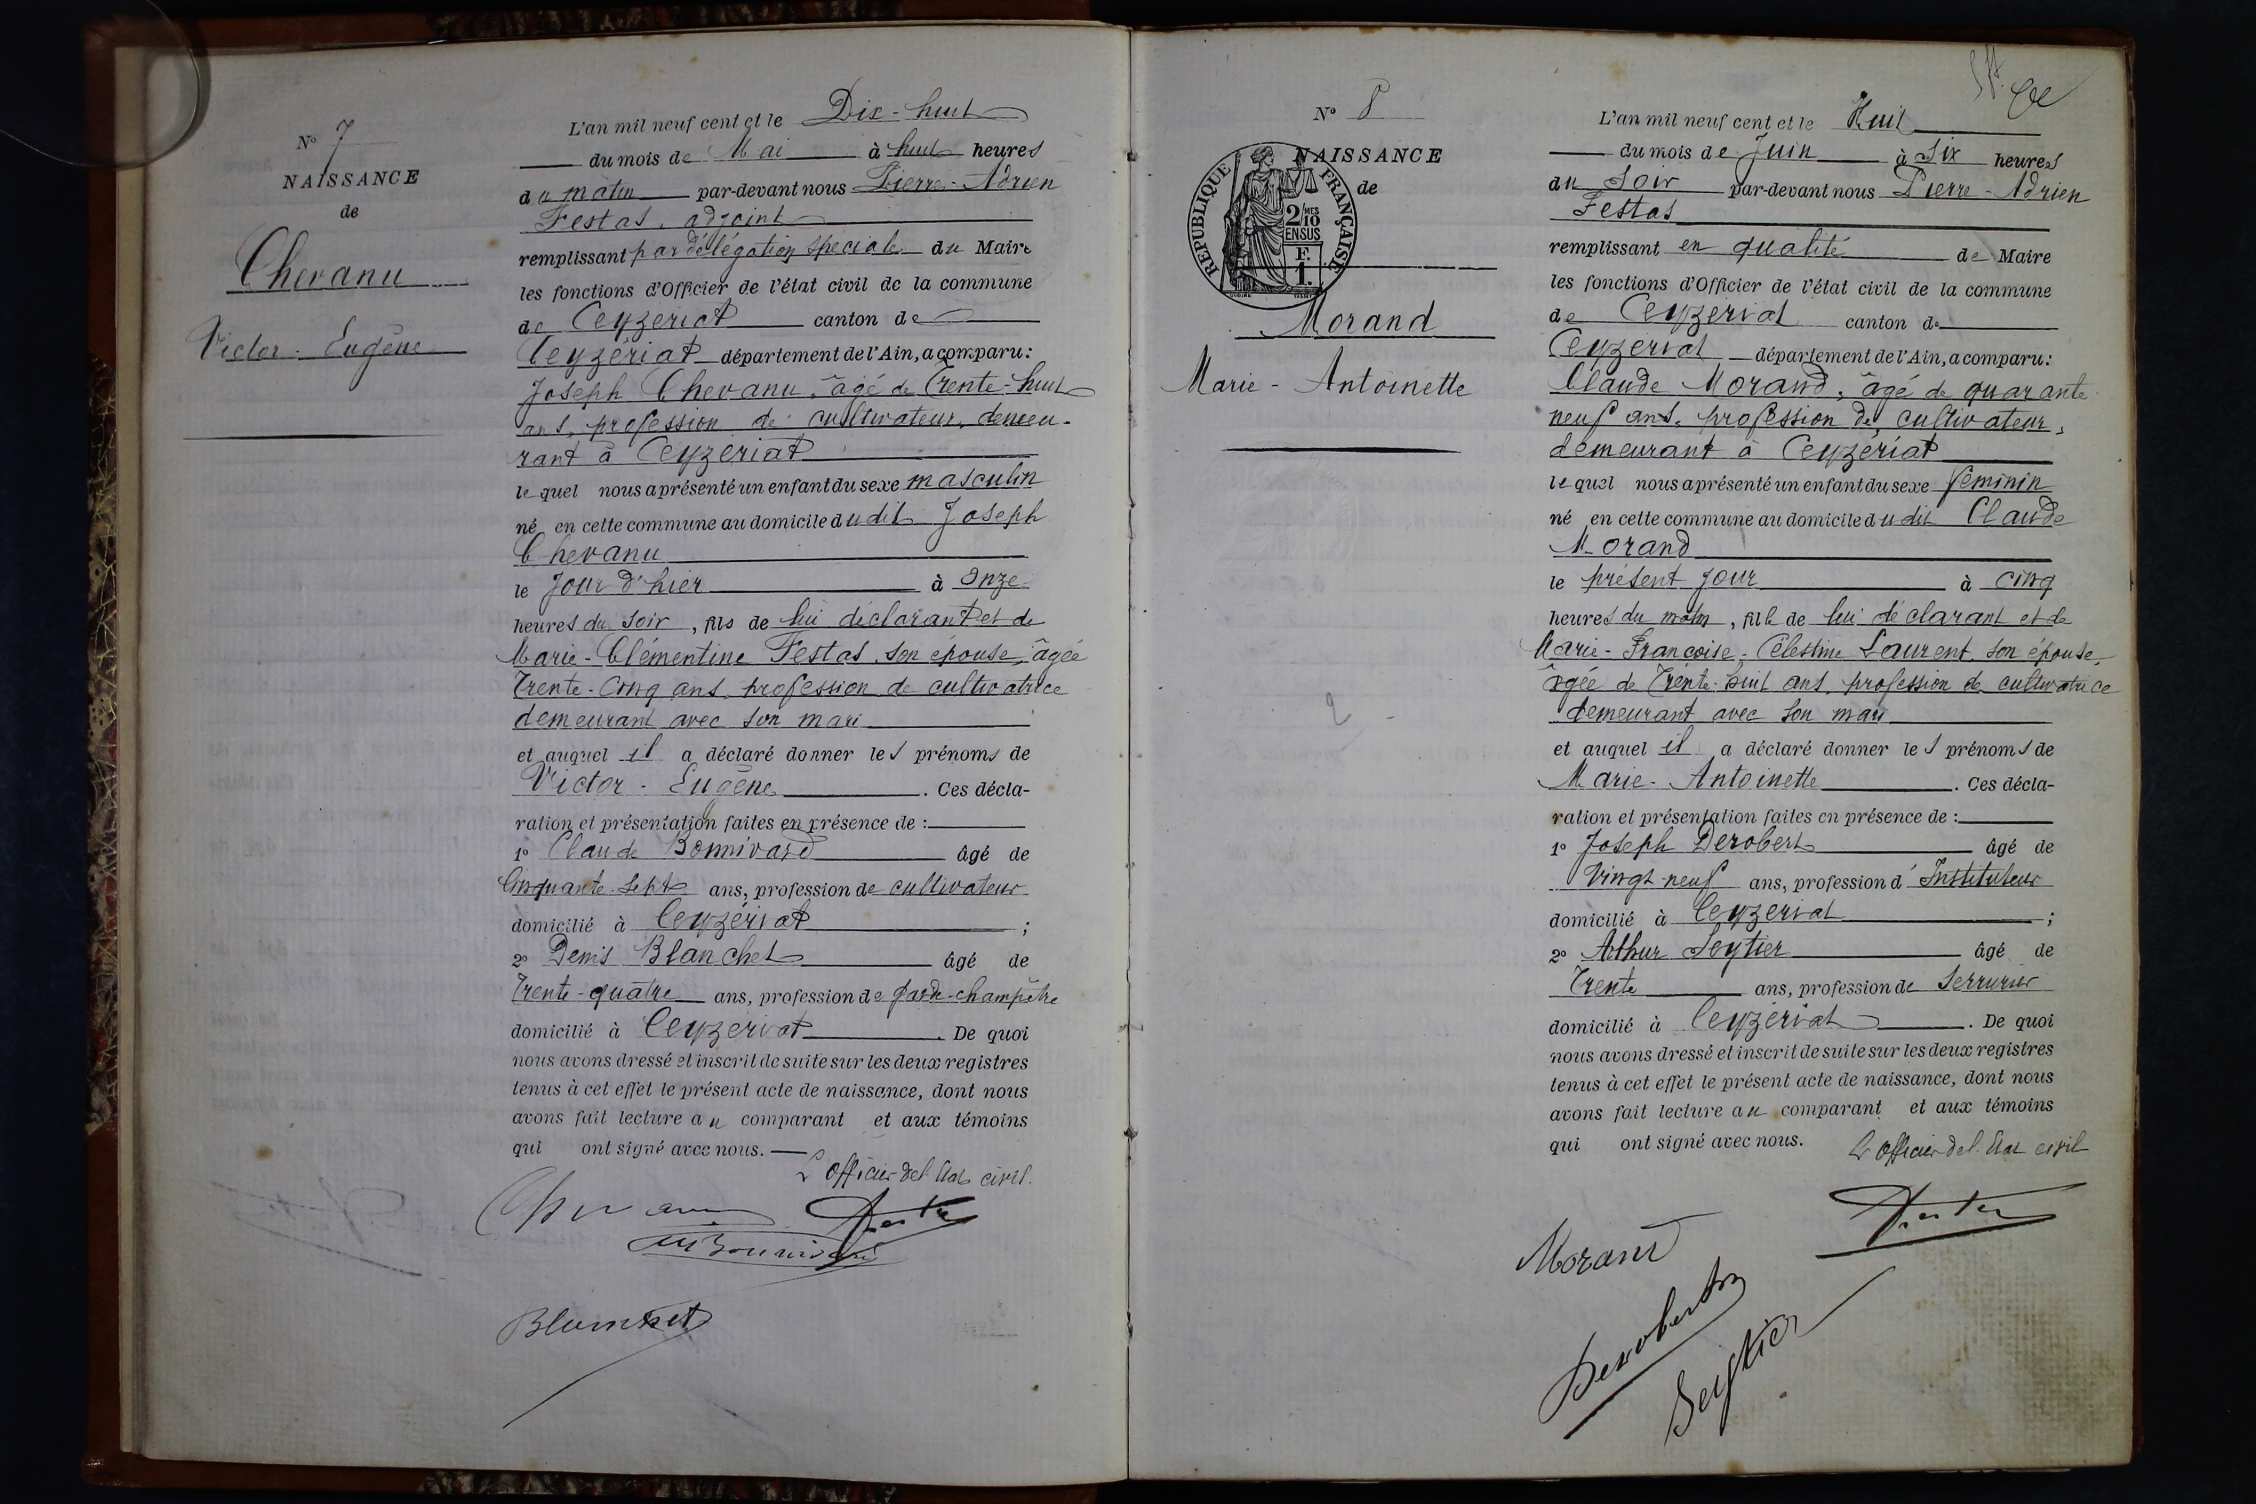 N° 7
NAISSANCE
de
Chevanu
Victor-Eugène
L'an mil neuf cent et le Dix-huit
du mois de Mai à huit heures
du matin par-devant nous Pierre-Adrien
Festas, adjoint
remplissant par délégation spéciale du Maire
les fonctions d'Officier de l'état civil de la commune
de Ceyzeriat canton de
Ceyzériat département de l'Ain, a comparu:
Joseph Chevanu, âgé de Trente-huit
ans, profession de cultivateur, demeu-
rant à Ceyzériat
le quel nous a présenté un enfant du sexe masculin
né en cette commune au domicile du dit Joseph
Chevanu
le Jour d'hier à onze
heures du soir, fils de lui déclarant et de
Marie-Clémentine Festas, son épouse, âgée
Trente-Cinq ans, profession de cultivatrice
demeurant avec son mari
et auquel il a déclaré donner les prénoms de
Victor-Eugène. Ces décla-
ration et présentation faites en présence de :
1° Claude Bonnivard âgé de
Cinquante-sept ans, profession de cultivateur
domicilié à Ceyzériat ;
2° Denis Blanchet âgé de
Trente-quatre ans, profession de garde-champêtre
domicilié à Ceyzériat. De quoi
nous avons dressé et inscrit de suite sur les deux registres
tenus à cet effet le présent acte de naissance, dont nous
avons fait lecture au comparant et aux témoins
qui ont signé avec nous.
L'officier del'Etat civil.
Chevanu
Festas
Bonnivard
Blanchet
N° 8
NAISSANCE
de
REPUBLIQUE FRANÇAISE
2/10 MES
EN SUS
F.
1.
Morand
Marie-Antoinette
L'an mil neuf cent et le Huit
du mois de Juin à Six heures
du Soir par-devant nous Pierre-Adrien
Festas
remplissant en qualité de Maire
les fonctions d'Officier de l'état civil de la commune
de Ceyzériat canton de
Ceyzeriat département de l'Ain, a comparu:
Claude Morand, âgé de quarante
neuf ans, profession de cultivateur,
demeurant à Ceyzériat
le quel nous a présenté un enfant du sexe féminin
né en cette commune au domicile du dit Claude
Morand
le présent jour à cinq
heures du matin, fille de lui déclarant et de
Marie-Françoise-Célestine Laurent, son épouse,
âgée de Trente-huit ans, profession de cultivatrice
demeurant avec son mari
et auquel il a déclaré donner les prénoms de
Marie-Antoinette. Ces décla-
ration et présentation faites en présence de :
1° Joseph Derobert âgé de
Vingt-neuf ans, profession d'Instituteur
domicilié à Ceyzeriat ;
2° Arthur Seytier âgé de
Trente ans, profession de Serrurier
domicilié à Ceyzériat. De quoi
nous avons dressé et inscrit de suite sur les deux registres
tenus à cet effet le présent acte de naissance, dont nous
avons fait lecture au comparant et aux témoins
qui ont signé avec nous.
L'officier del'Etat civil
Festas
Morand
Derobert
Seytier